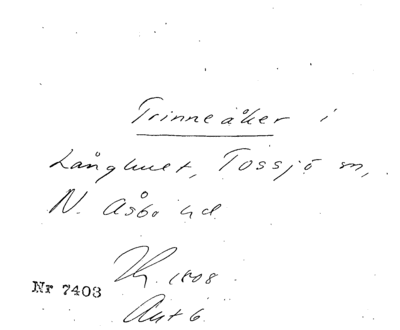 Trinneåker i
Långhult, Tossjö sn,
N. Åsbo hd
Nr 7403
1808
Akt 6